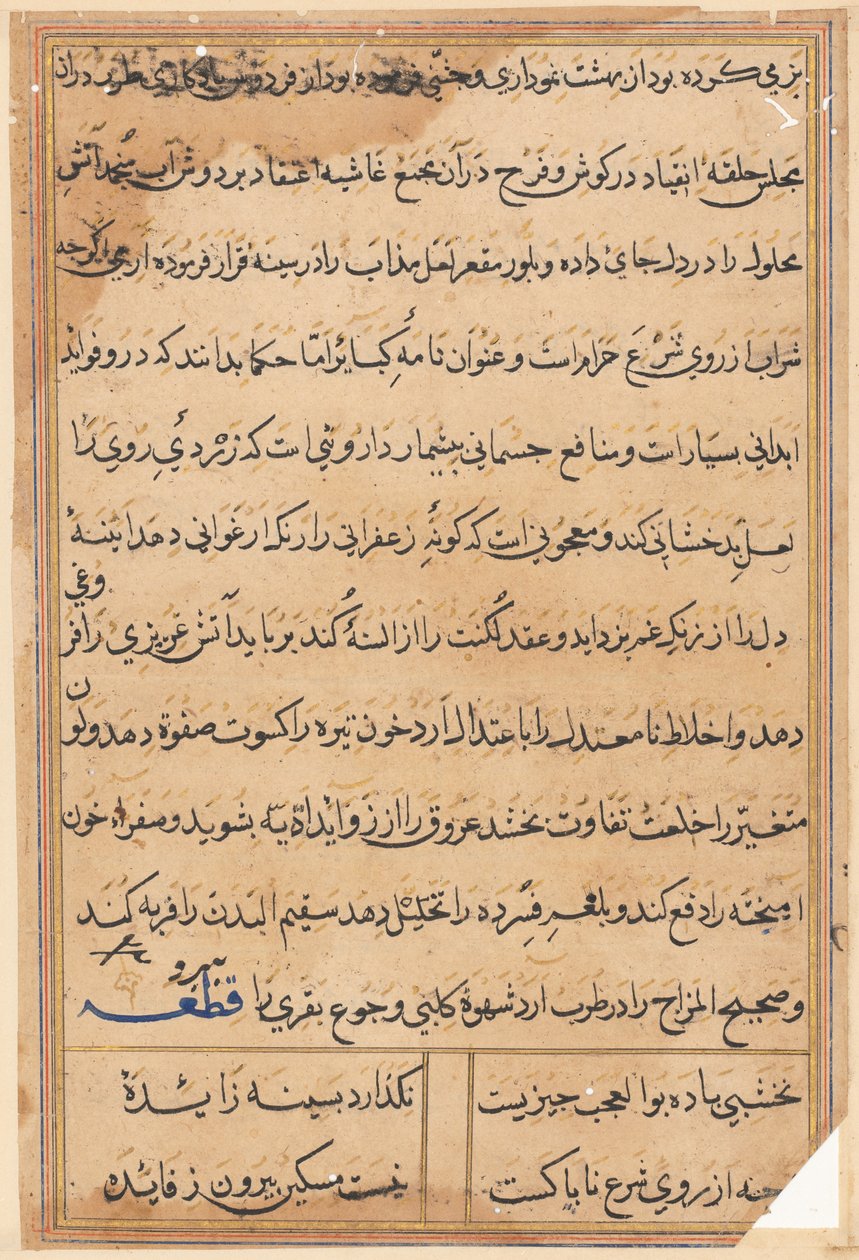 بزمی کرده بود از بهشت نموداری و جشنی فرموده بود از فردوس یادکاری طرب در ان
مجلس حلقهٔ انقیاد در کوش و فرح در آن مجمع غاشیه اعتقاد بر دوش آب منجمد آتش
محلول را در دل جائ داده و بلور مقعر لعل مذاب را در سینه قرار فرموده اری می اکرچه
شراب از روی شرع حرام است و عنوان نامهٔ کبائر امّا حکما بدانند که درو فواید
ابدانی بسیار است و منافع جسمانی بیشمار داروئی است که زردئ روی را
لعل بدخشانی کند و معجونی است که کونهٔ زعفرانی را رنک ارغوانی دهد اینهٔ
دل را از زنک غم بزداید و عقد لکنت را از السنهٔ کند برباید آتش غریزی را فروغی
دهد و اخلاط نا معتدل را باعتدال ارد خون تیره را کسوت صفوة دهد و لون
متغیّر را خلعت تفاوت بخشد عروق را از زوائد ادّیه بشوید و صفراء خون
امیخته را دفع کند و بلغم فسرده را تحلیل دهد سقیم البدن را فربه کند
و صحیح المزاج را در طرب ارد شهوة کلبی و جوع بقری را ببرد قطعه
نخشبی باده بوالعجب چیزیست نکذارد بسینه زائدهٔ
از روی شرع ناباکست نیست مسکین بیرون ز فائده